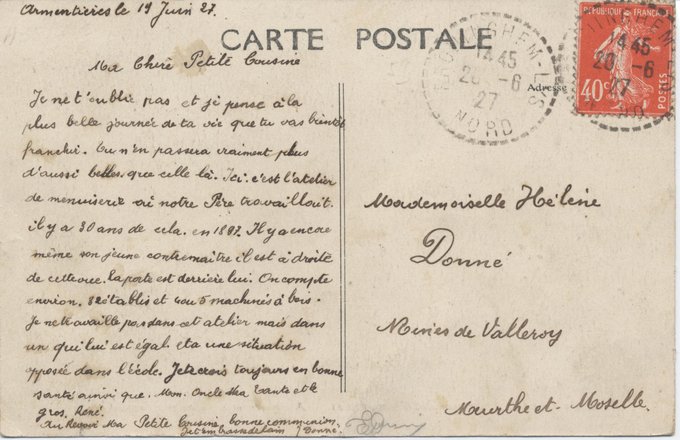 Armentières le 19 Juin 27.
CARTE POSTALE
Ma Chère Petite Cousine
Je ne t'oublie pas et je pense à la
plus belle journée de ta vie que tu vas bientôt
franchi. Tu n'en passera vraiment plus
d'aussi belles que celle là. Ici c'est l'atelier
de menuiserie où notre Père travaillait.
il y a 30 ans de cela. en 1897. Il y a encore
même son jeune contremaitre il est à droite
de cette vue. la porte est derrière lui. On compte
environ. 32 établis et 4 ou 5 machines à bois.
Je ne travaille pas dans cet atelier mais dans
un qui lui est égal. et a une situation
opposée dans l'école. Je te crois toujours en bonne
santé ainsi que. Mon. Oncle Ma Tante et le
gros. René.
Au Revoir Ma Petite Cousine, bonne communion.
Je t'embrasse de loin J Donné.
Adresse
14 45
20 - 6
27
NORD
REPUBLIQUE FRANÇAISE
40c
POSTES
14 45
20 - 6
27
Mademoiselle Hélène
Donné
Mines de Valleroy
Meurthe-et-Moselle.